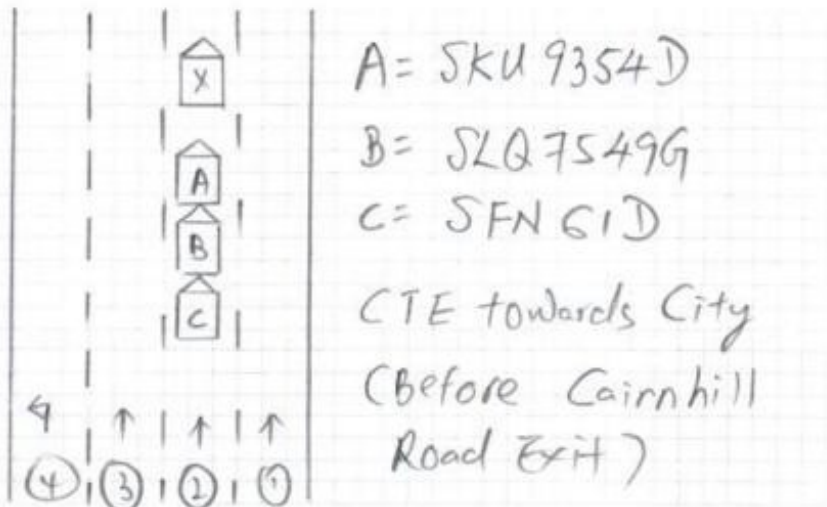 X
A
B
C
4 3 2 1
A= SKU 9354D
B= SLQ7549G
C= SFN 61D
CTE towards City
(Before Cairnhill
Road Exit)